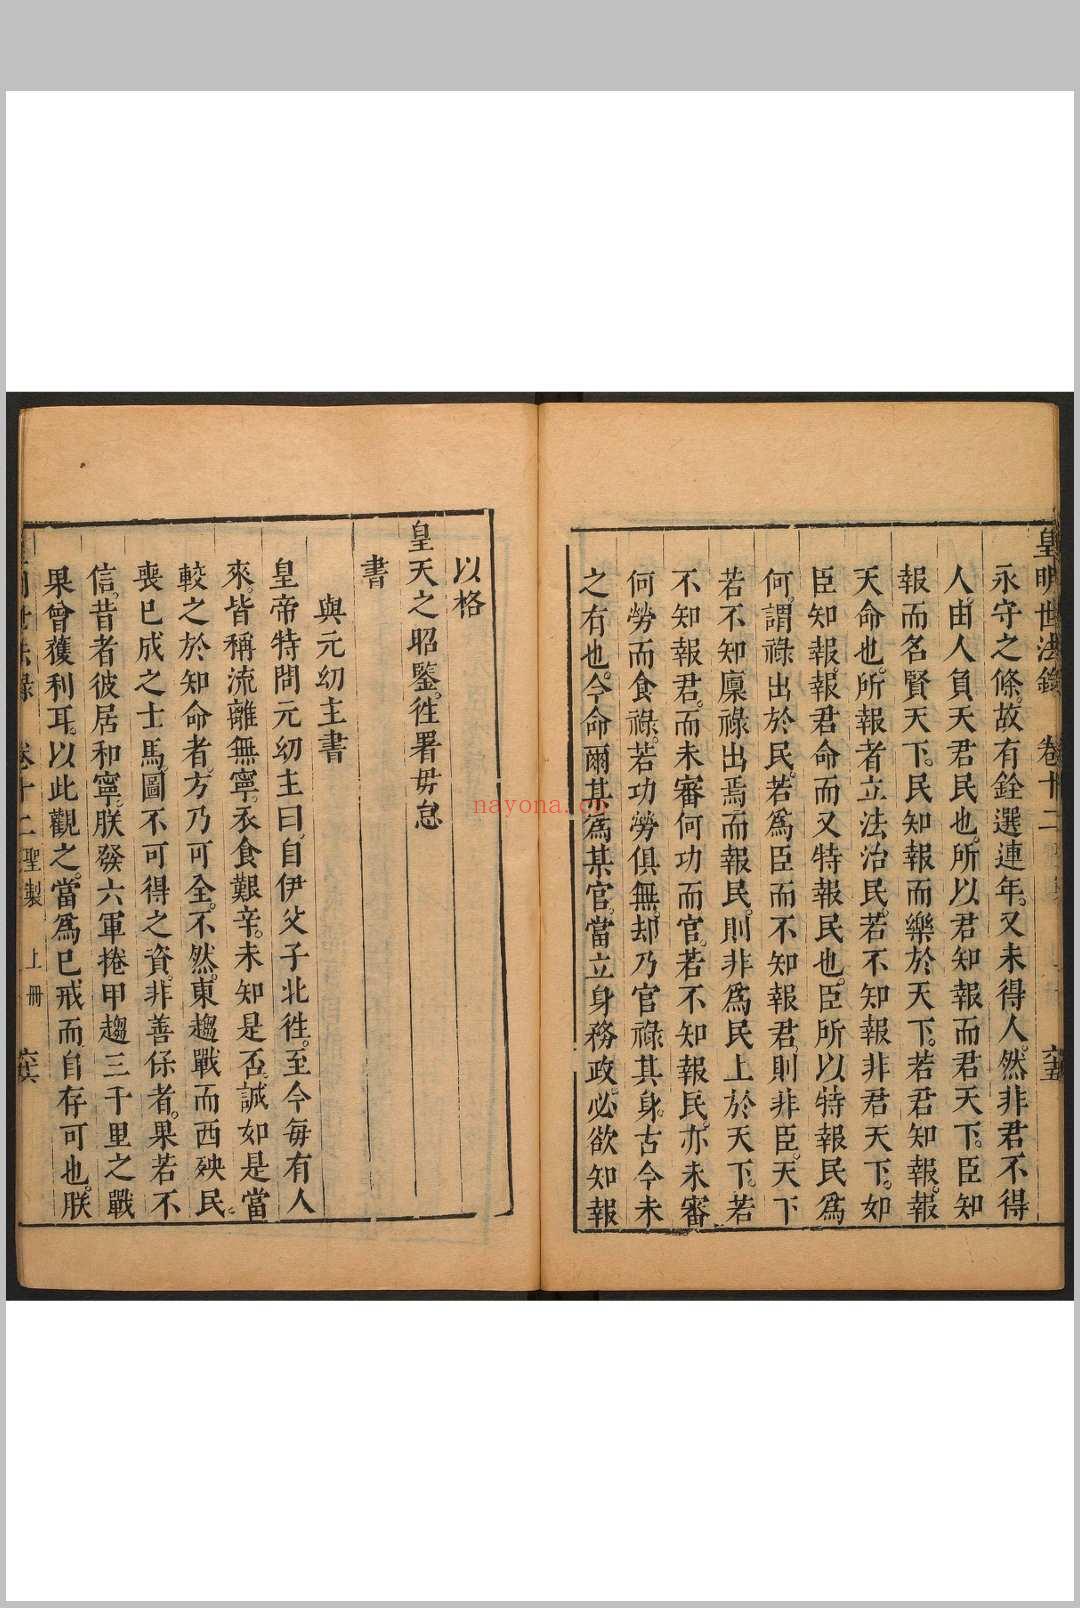 皇明世法錄 卷十二 六五
永守之條。故有銓選連年。又未得人。然非君不得
人。由人負天君民也。所以君知報而君天下。臣知
報而名賢天下。民知報而樂於天下。若君知報。報
天命也。所報者立法治民。若不知報非君天下。如
臣知報。報君命而又特報民也。臣所以特報民爲
何。謂祿出於民。若爲臣而不知報君。則非臣。天下
若不知廩祿出焉而報民。則非爲民上於天下。若
不知報君。而未審何功而官。若不知報民。亦未審
何勞而食祿。若功勞俱無。却乃官祿其身。古今未
之有也。今命爾某爲某官。當立身務政。必欲知報
以格
皇天之昭鑒。徃署毋怠
書
與元幼主書
皇帝特問元幼主曰。自伊父子北徃。至今每有人
來。皆稱流離無寧。衣食艱辛。未知是否。誠如是當
較之於知命者。方乃可全。不然。東趨戰而西殃民。
喪已成之士馬。圖不可得之資。非善保者。果若不
信。昔者彼居和寧。朕發六軍捲甲趨三千里之戰
果曾獲利耳。以此觀之。當爲已戒而自存可也。朕
世法錄 卷十二 聖製 上冊 六六
nayona.cn